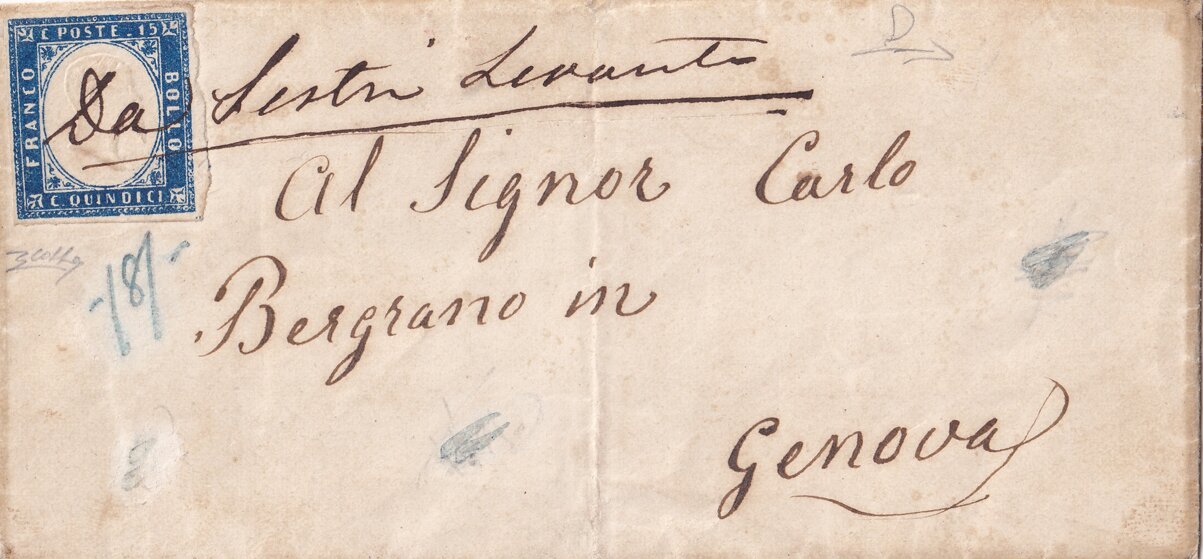 C POSTE . 15
FRANCO
BOLLO
C. QUINDICI
Da Sestri Levante
Al Signor Carlo
Bergrano in
Genova
D
/8/